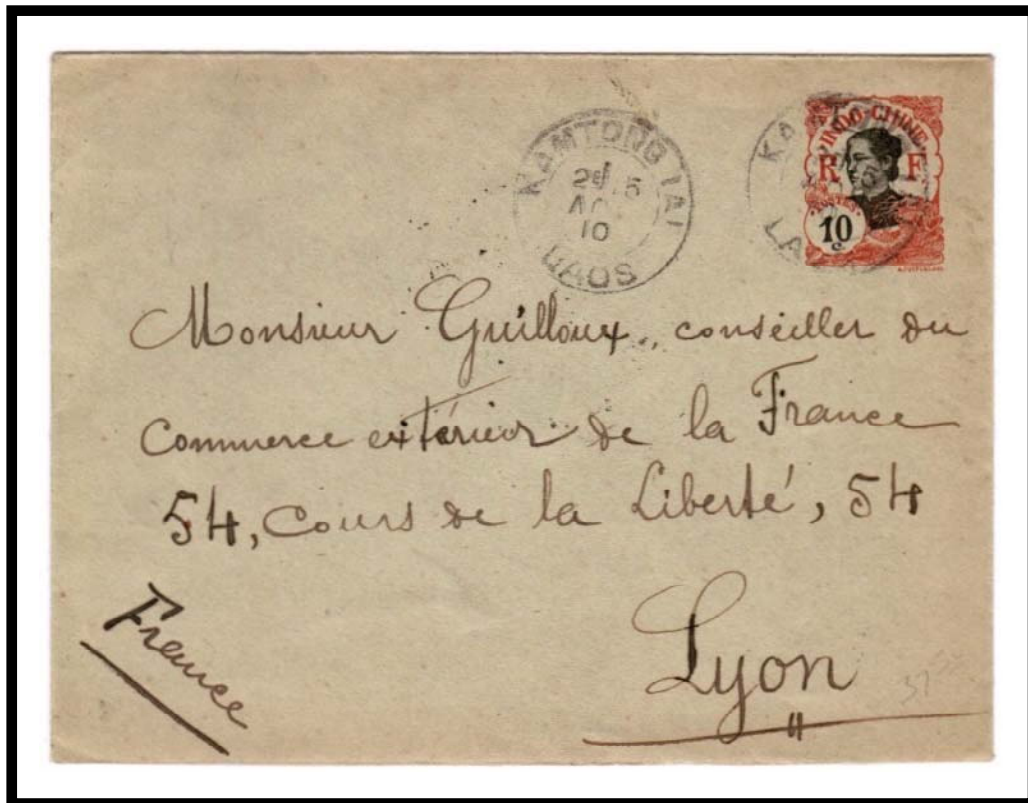 KAMTONG LAI
5
AO
10
LAOS
INDO-CHINE
R F
POSTES
10
c.
Monsieur Guilloux, conseiller du
Commerce extérieur de la France
54, Cours de la Liberté, 54
France
Lyon